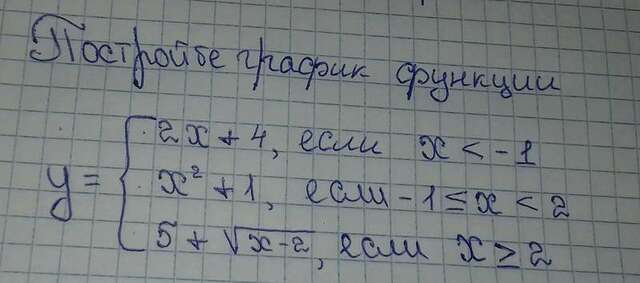 Постройте график функции
y = { 2x + 4, если x < -1
x² + 1, если -1 ≤ x < 2
5 + √(x-2), если x ≥ 2